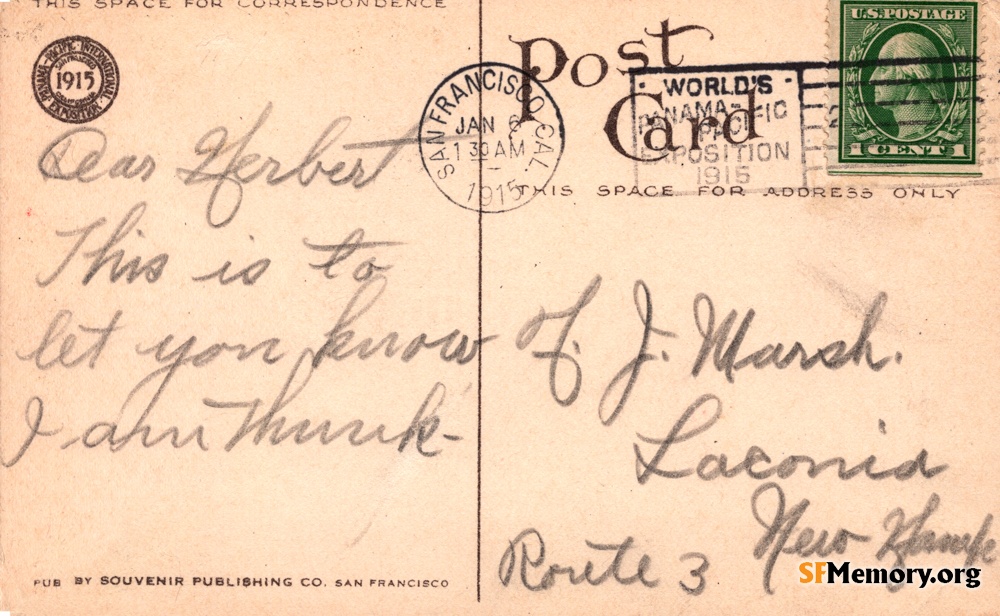 THIS SPACE FOR CORRESPONDENCE
PANAMA-PACIFIC INTERNATIONAL EXPOSITION
SAN FRANCISCO
1915
Post
Card
SAN FRANCISCO, CAL.
JAN 6
1 30 AM
1915
WORLD'S
PANAMA-
PACIFIC
EXPOSITION
1915
U.S. POSTAGE
1 CENT 1
THIS SPACE FOR ADDRESS ONLY
Dear Herbert
This is to
let you know
I am Thunk-
H. J. Marsh.
Laconia
New Hampc
Route 3
PUB BY SOUVENIR PUBLISHING CO. SAN FRANCISCO
SFMemory.org